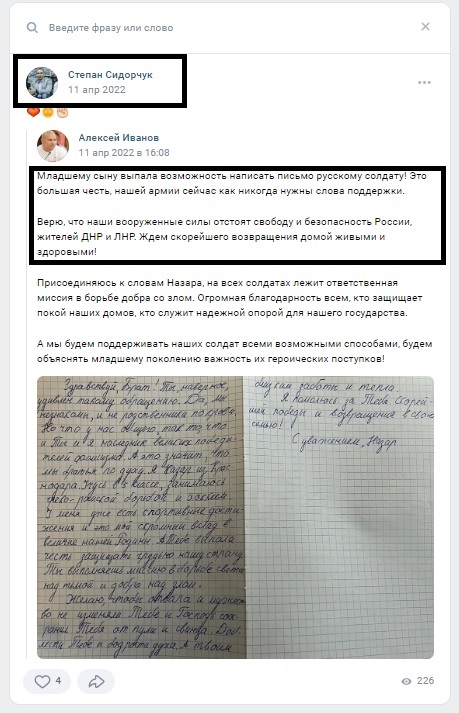 Введите фразу или слово
Степан Сидорчук
11 апр 2022
Алексей Иванов
11 апр 2022 в 16:08
Младшему сыну выпала возможность написать письмо русскому солдату! Это
большая честь, нашей армии сейчас как никогда нужны слова поддержки.
Верю, что наши вооруженные силы отстоят свободу и безопасность России,
жителей ДНР и ЛНР. Ждем скорейшего возвращения домой живыми и
здоровыми!
Присоединяюсь к словам Назара, на всех солдатах лежит ответственная
миссия в борьбе добра со злом. Огромная благодарность всем, кто защищает
покой наших домов, кто служит надежной опорой для нашего государства.
А мы будем поддерживать наших солдат всеми возможными способами, будем
объяснять младшему поколению важность их героических поступков!
Здравствуй, Брат! Ты, наверное,
удивлен такому обращению. Да, мы
незнакомы, и не родственники по крови.
Но что у нас общего, так то что
и Ты и я наследник великих победи-
телей фашизма. А это значит, что
мы братья по духу. Я Назар из Крас-
нодара. Учусь в 5 классе, занимаюсь
греко-римской борьбой и хоккеем.
У меня уже есть спортивные дости-
жения и это мой скромный вклад в
величие нашей Родины. А Тебе выпала
честь защищать грудью нашу страну.
Ты выполняешь миссию в борьбе света
над тьмой и добра над злом.
Желаю, чтобы отвага и мужест-
во не изменяли Тебе и Господь сох-
ранил Тебя от пули и свинца. Доб-
лести Тебе и бодрости духа, а твоим
близким заботы и тепла.
Я молюсь за Тебя скорей-
шей победы и возвращения в свою
семью!
С уважением, Назар
4
226